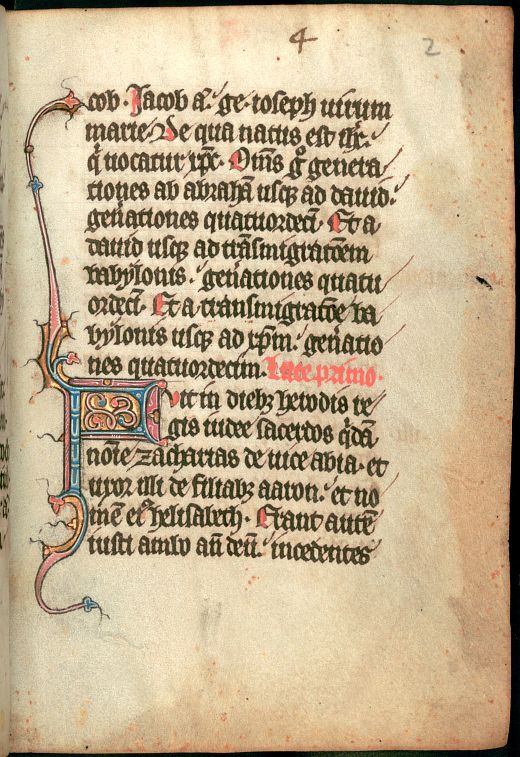 4 2
cob. Jacob a᷒. ge. ioseph uirum
marie. De qua natus est ih̅c.
q̇ uocatur xp̅c. Om̅s gͦ genera
tiones ab abraha̅ usq̨ ad dauid.
gen̅ationes quatuordeci̅. Et a
dauid usq̨ ad tra̅smigrac̅oem
babylonis. gen̅ationes quatu
ordeci̅. Et a transmigrac̅oe ba
bylonis usq̨ ad xp̅m. gen̅atio
nes quatuordecim. Luce primo.
Fuit in dieb̨ herodis re
gis iudee sacerdos q̇da̅
no̅ie zacharias de uice abia. et
uxor illi de filiab̨ aaron. et no
me̅ ei᷒ helisabeth. Erant aute̅
iusti ambo an̅ deu̅. incedentes